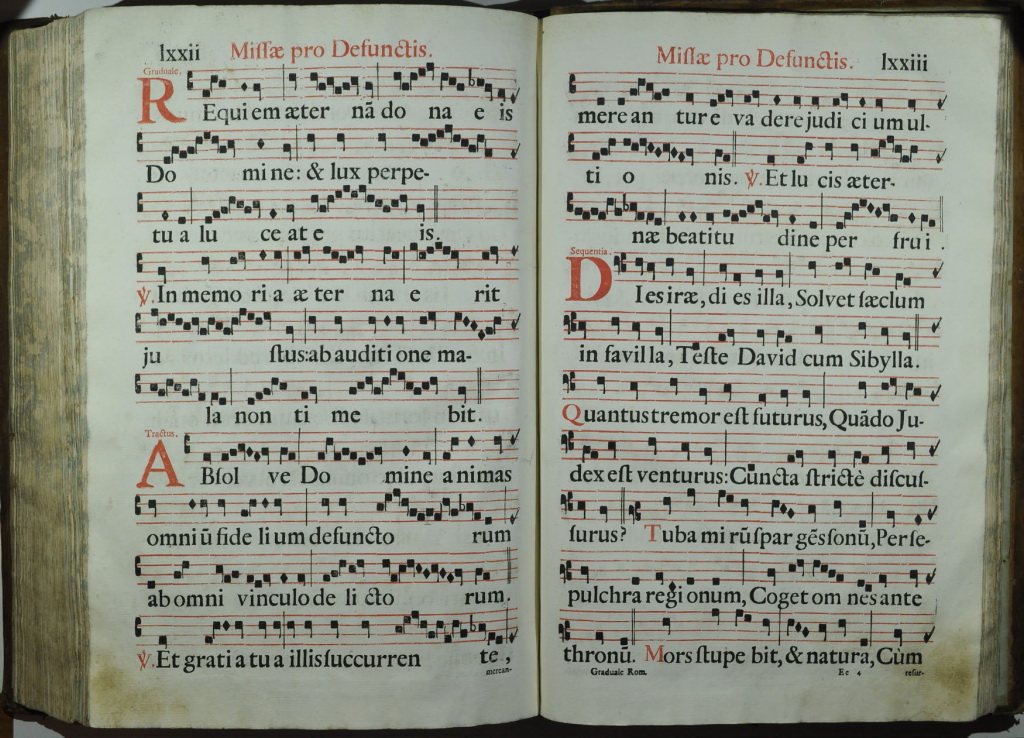 lxxii Miſſæ pro Defunctis.
Graduale.
REquiem æter nã do na e is
Do mi ne: & lux perpe-
tu a lu ce at e is.
℣. In memo ri a æ ter na e rit
ju ſtus: ab auditi one ma-
la non ti me bit.
Tractus.
ABſol ve Do mine animas
omni ũ fide li um defuncto rum
ab omni vinculo de li cto rum.
℣. Et grati a tu a illis ſuccurren te,
merean-
Miſſæ pro Defunctis. lxxiii
mere an tur e va dere judi ci um ul-
ti o nis. ℣. Et lu cis æter-
næ beatitu dine per frui.
Sequentia.
DIes iræ, di es illa, Solvet ſæclum
in favilla, Teſte David cum Sibylla.
Quantus tremor eſt futurus, Quãdo Ju-
dex eſt venturus: Cuncta ſtrictè diſcuſ-
ſurus? Tuba mi rũ ſpar gẽs ſonũ, Per ſe-
pulchra regi onum, Coget om nes ante
thronũ. Mors ſtupe bit, & natura, Cùm
Graduale Rom. Ee 4 reſur-